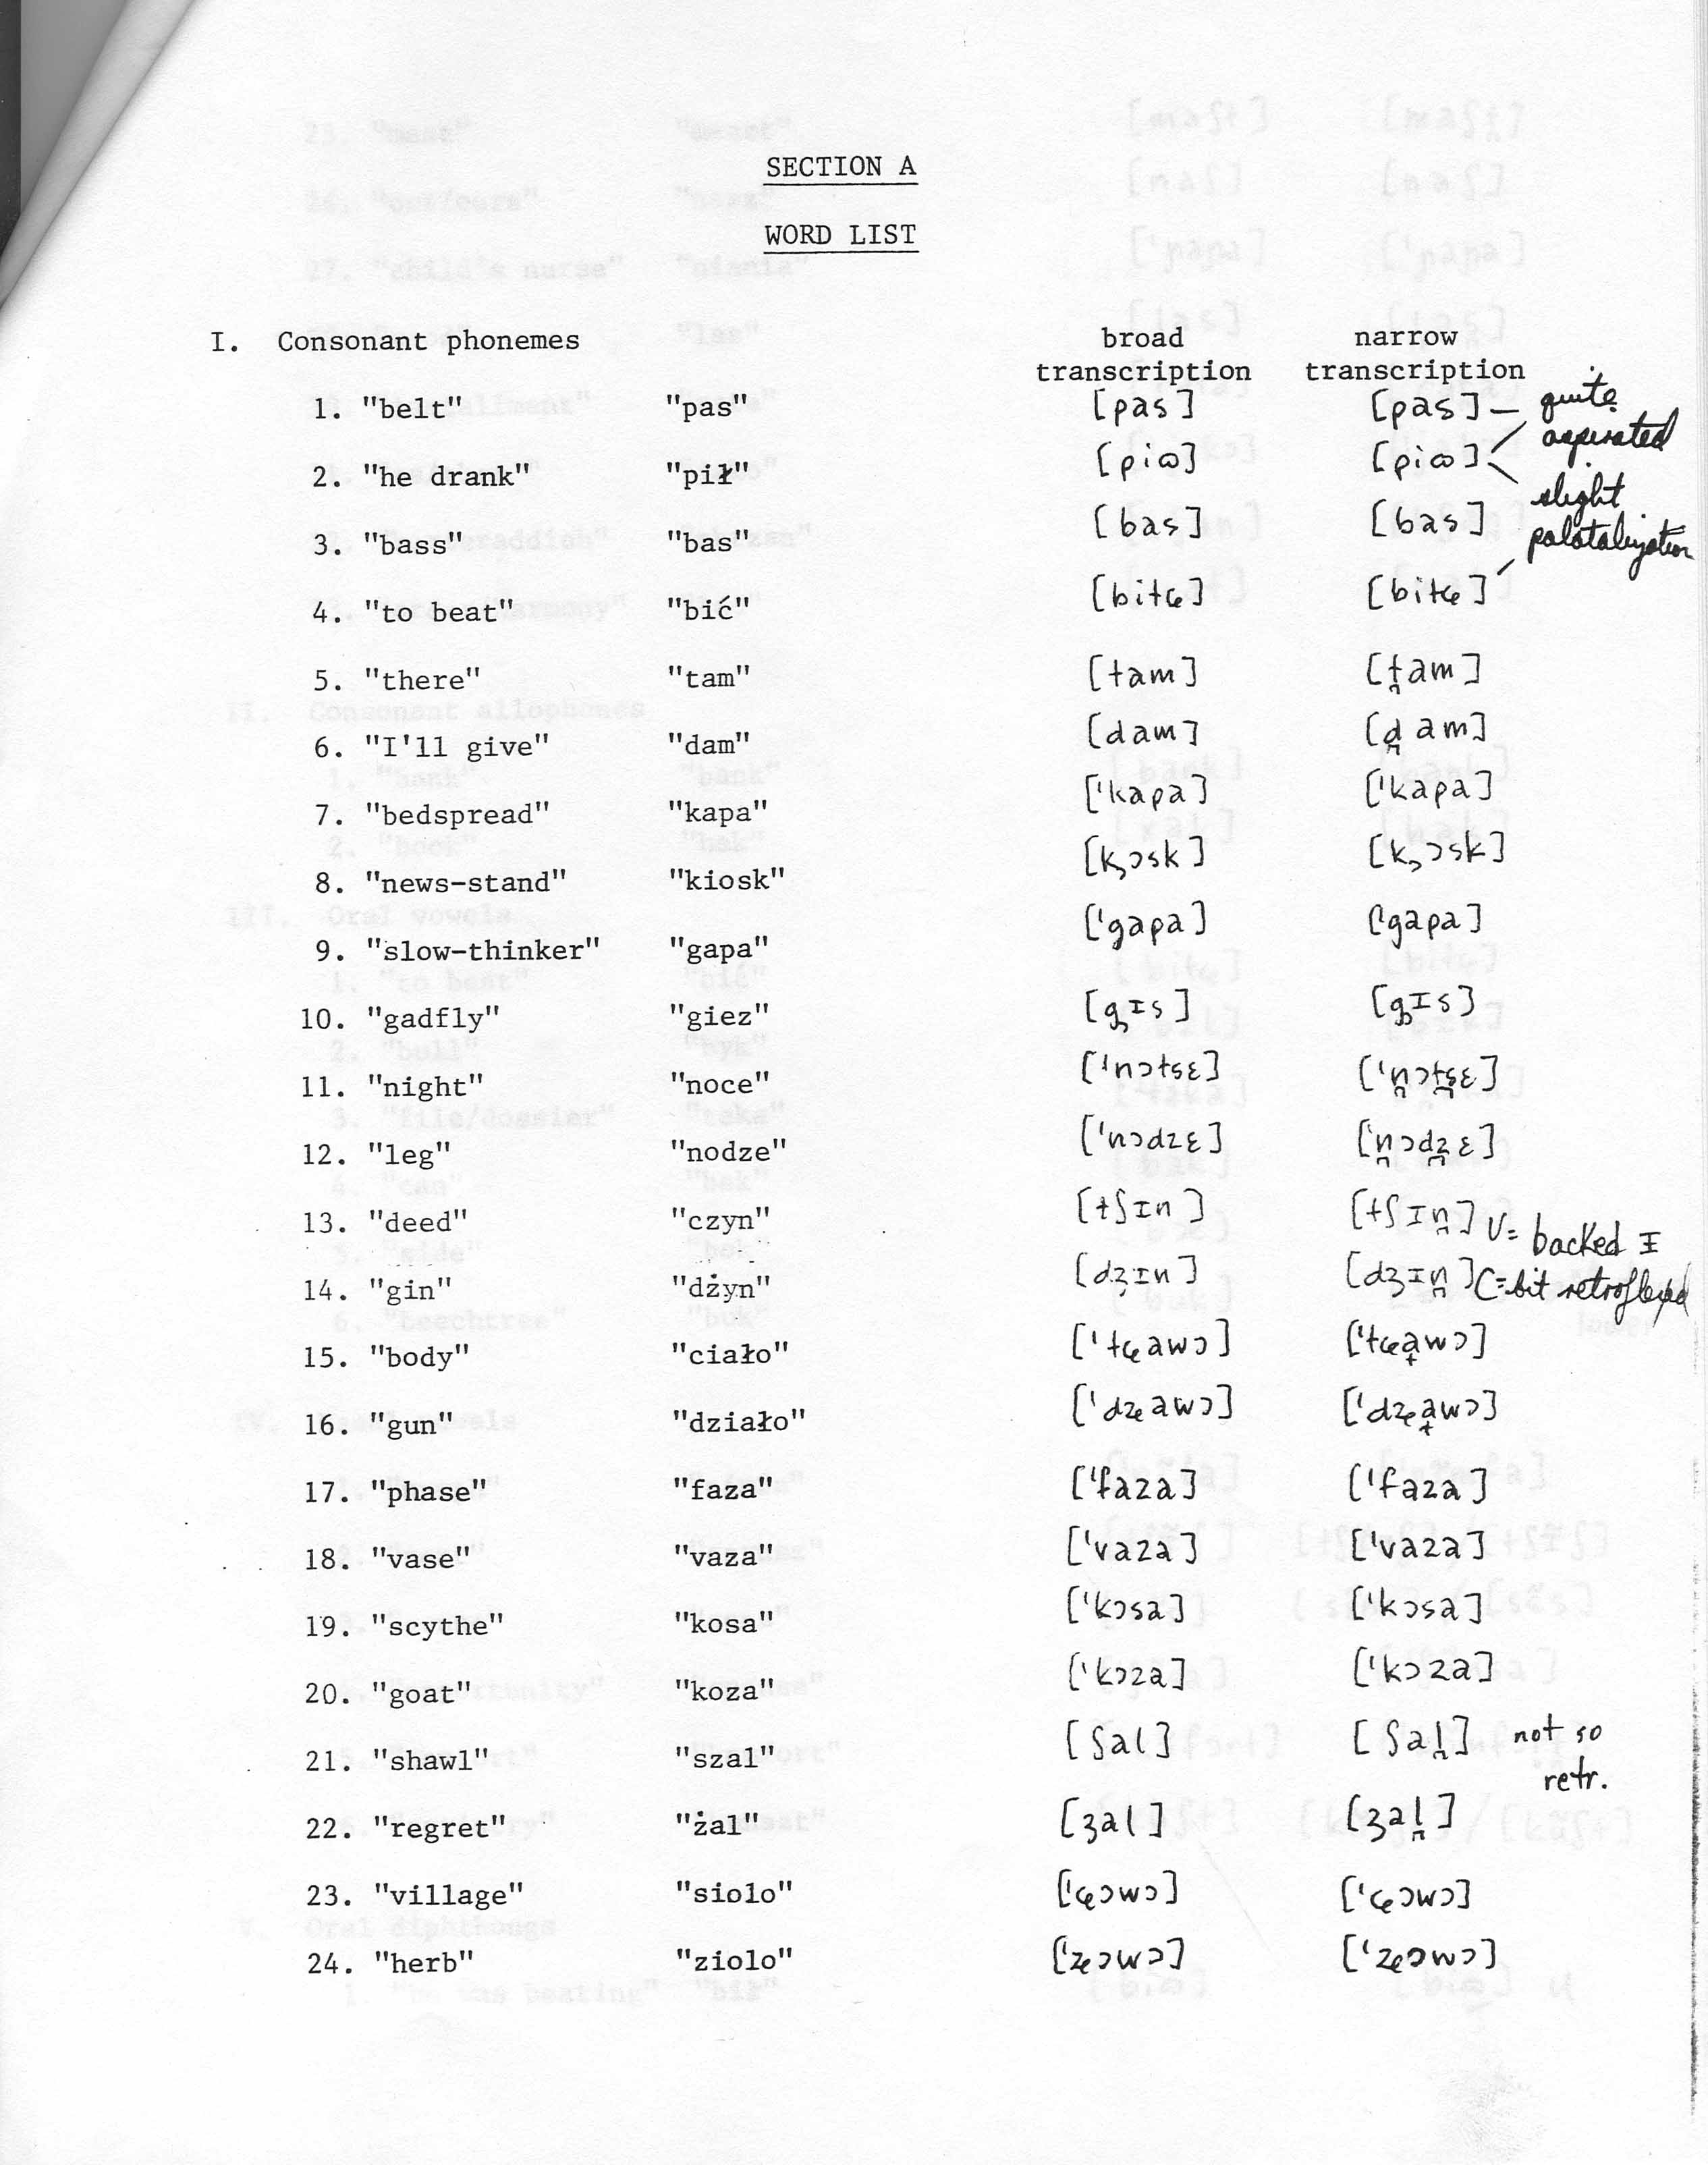 SECTION A
WORD LIST
I. Consonant phonemes broad narrow
transcription transcription
1. "belt" "pas" [pas] [pas] — quite aspirated
2. "he drank" "pił" [piɷ] [piɷ] slight palatalization
3. "bass" "bas" [bas] [bas]
4. "to beat" "bić" [bitɕ] [bitɕ]
5. "there" "tam" [tam] [t̪am]
6. "I'll give" "dam" [dam] [d̪am]
7. "bedspread" "kapa" ['kapa] ['kapa]
8. "news-stand" "kiosk" [k̡ɔsk] [k̡ɔsk]
9. "slow-thinker" "gapa" ['gapa] ['gapa]
10. "gadfly" "giez" [g̡ɪs] [g̡ɪs]
11. "night" "noce" ['nɔtsɛ] ['n̪ɔt̪s̪ɛ]
12. "leg" "nodze" ['nɔdzɛ] ['n̪ɔd̪z̪ɛ]
13. "deed" "czyn" [tʃɪn] [tʃɪn̪] V= backed ɪ
14. "gin" "dżyn" [dʒɪn] [dʒɪn̪] C=bit retroflexed
15. "body" "ciało" ['tɕawɔ] ['tɕa̟wɔ]
16. "gun" "działo" ['dʑawɔ] ['dʑa̟wɔ]
17. "phase" "faza" ['faza] ['faza]
18. "vase" "vaza" ['vaza] ['vaza]
19. "scythe" "kosa" ['kɔsa] ['kɔsa]
20. "goat" "koza" ['kɔza] ['kɔza]
21. "shawl" "szal" [ʃal] [ʃal̪] not so
retr.
22. "regret" "żal" [ʒal] [ʒal̪]
23. "village" "siolo" ['ɕɔwɔ] ['ɕɔwɔ]
24. "herb" "ziolo" ['ʑɔwɔ] ['ʑɔwɔ]